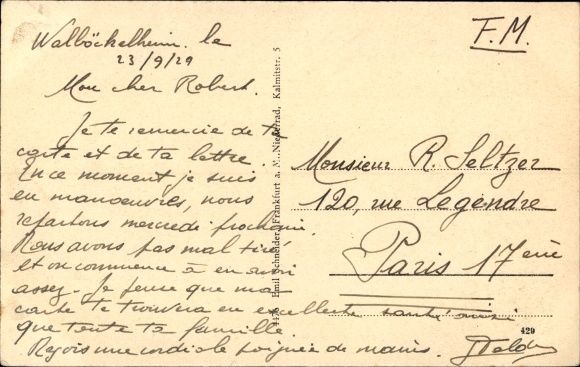 Walböckelheim, le
23/9/29
Mon cher Robert.
Je te remercie de ta
carte et de ta lettre.
En ce moment je suis
en manoeuvres, nous
repartons mercredi prochain.
Nous avons pas mal tiré
et on commence à en avoir
assez. Je pense que ma
carte te trouvera en excellente santé ainsi
que toute ta famille.
Reçois une cordiale poignée de mains.
4475 Emil Schneider, Frankfurt a. M.-Niederrad, Kalmitstr. 5
F.M.
Monsieur R. Seltzer
120, rue Legendre
Paris 17ème
429